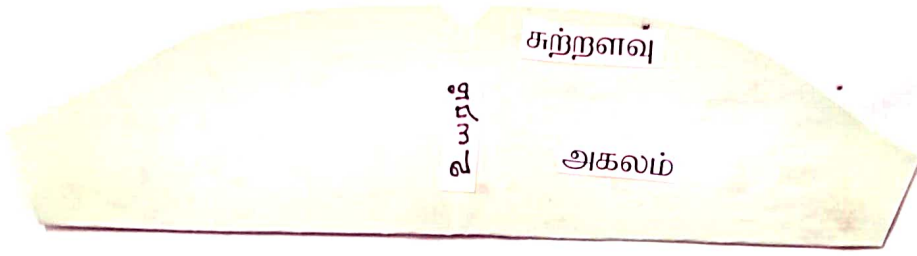 சுற்றளவு
உயரம்
அகலம்